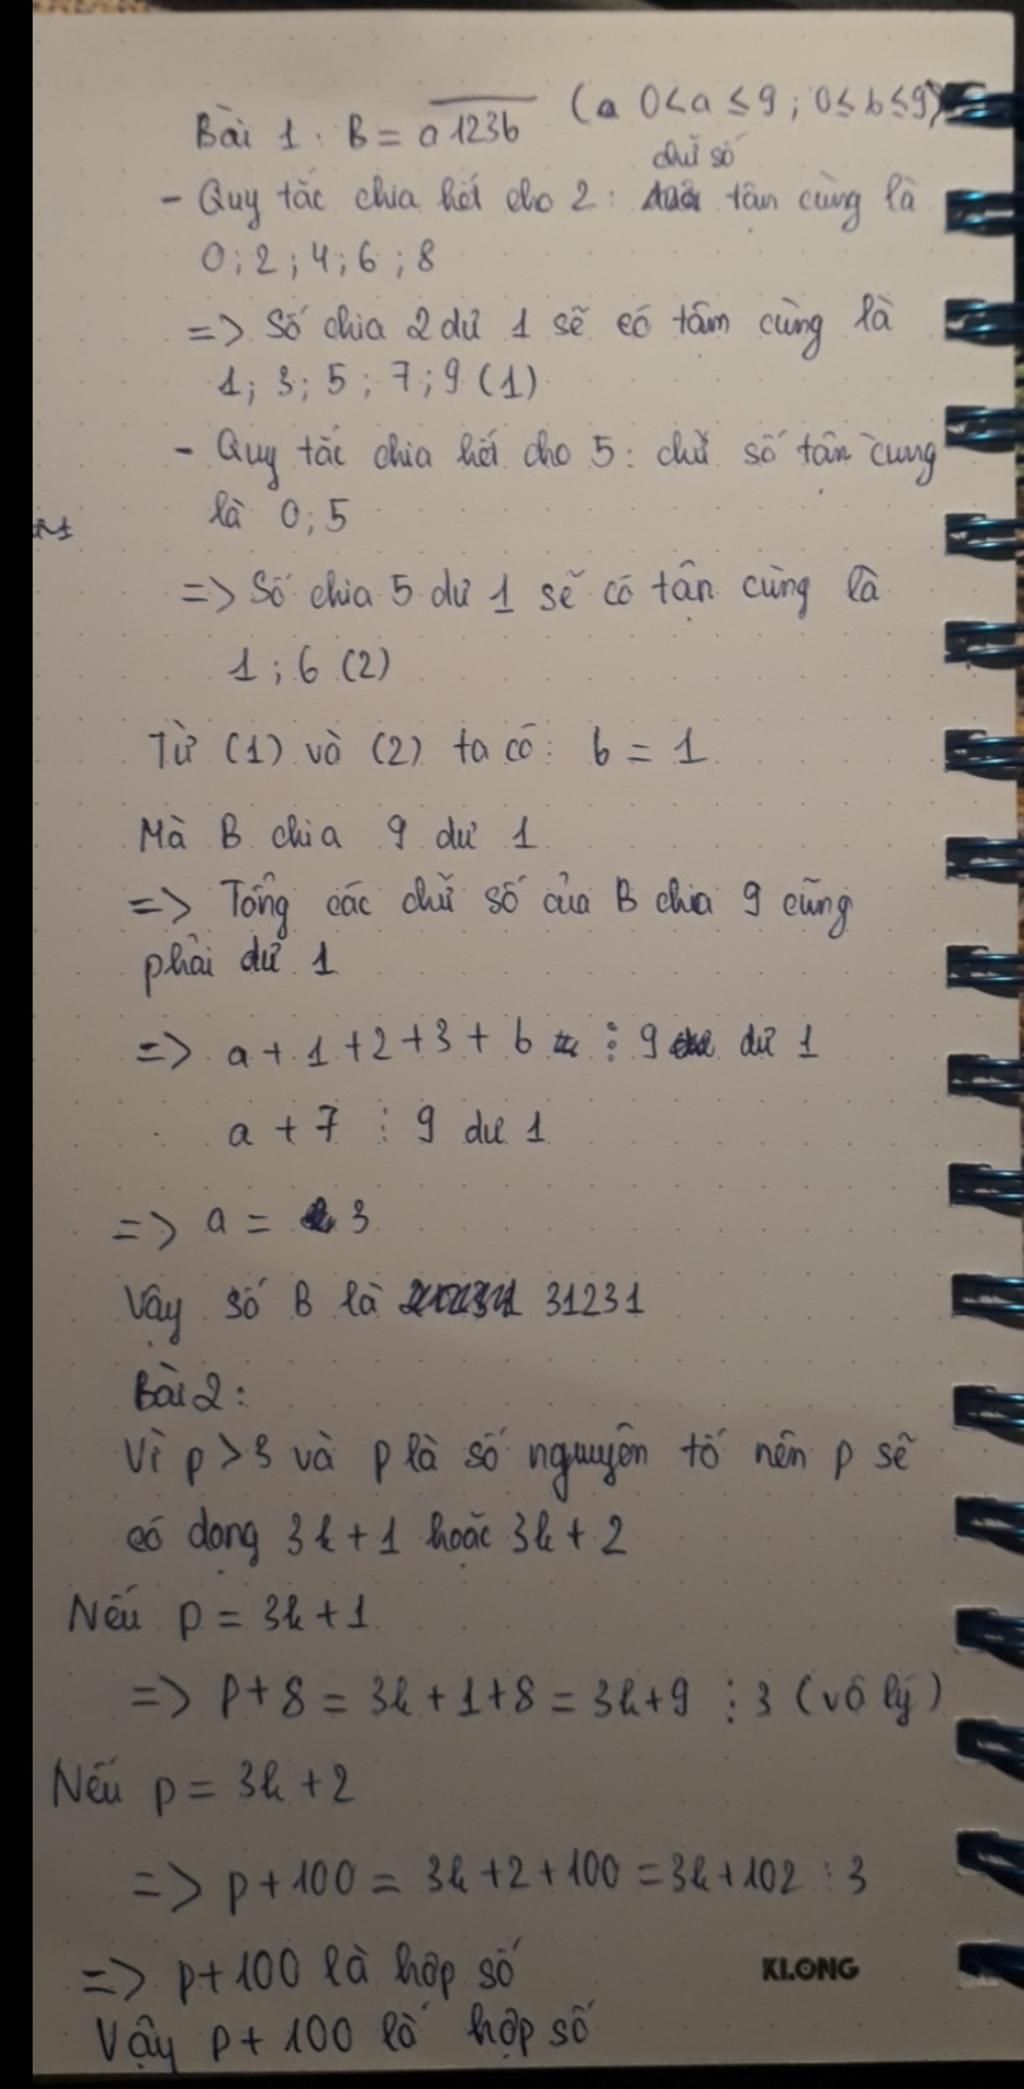 Bài 1: B = a123b (a 0<a ≤ 9; 0 ≤ b ≤ 9)
chữ số
- Quy tắc chia hết cho 2: tận cùng là
0; 2; 4; 6; 8
=> Số chia 2 dư 1 sẽ có tâm cùng là
1; 3; 5; 7; 9 (1)
- Quy tắc chia hết cho 5: chữ số tận cùng
là 0; 5
=> Số chia 5 dư 1 sẽ có tận cùng là
1; 6 (2)
Từ (1) và (2) ta có: b = 1
Mà B chia 9 dư 1
=> Tổng các chữ số của B chia 9 cũng
phải dư 1
=> a + 1 + 2 + 3 + b ⋮ 9 dư 1
a + 7 ⋮ 9 dư 1
=> a = 3
Vậy số B là 31231
Bài 2:
Vì p > 3 và p là số nguyên tố nên p sẽ
có dạng 3k + 1 hoặc 3k + 2
Nếu p = 3k + 1
=> p + 8 = 3k + 1 + 8 = 3k + 9 ⋮ 3 (vô lý)
Nếu p = 3k + 2
=> p + 100 = 3k + 2 + 100 = 3k + 102 ⋮ 3
=> p + 100 là hợp số
KLONG
Vậy p + 100 là hợp số